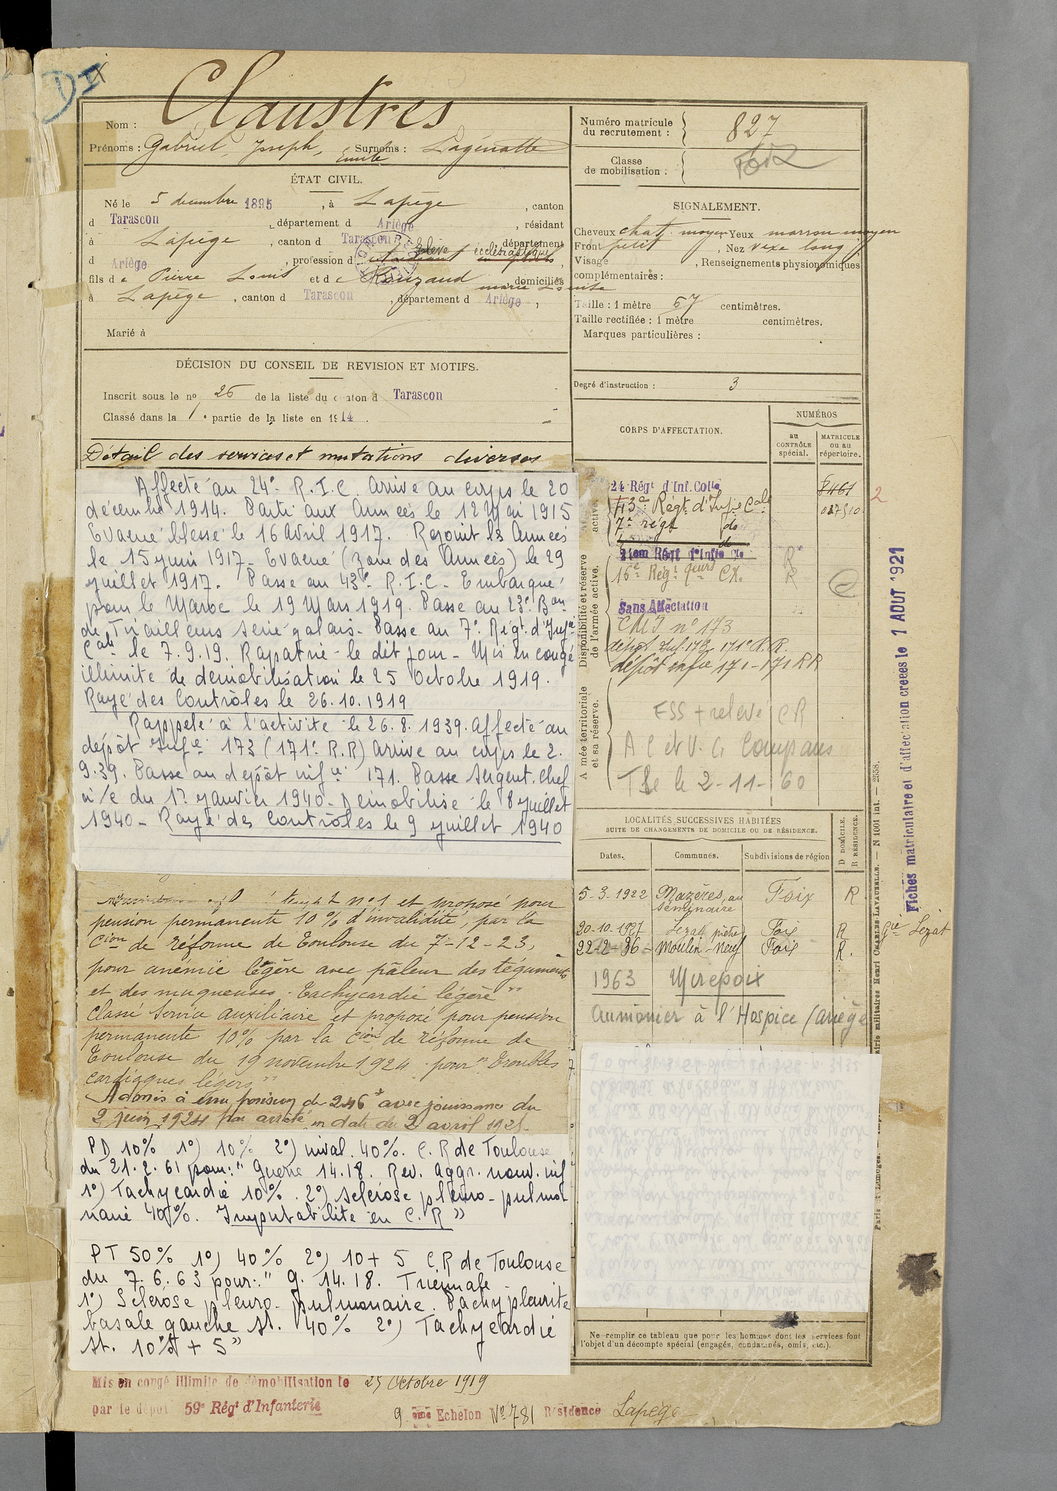 DX
Claustres
Nom :
Prénoms : Gabriel, Joseph, Emile Surnoms : Lagénatte
ÉTAT CIVIL.
Né le 5 décembre 1895, à Lapège, canton
d Tarascon, département d Ariège, résidant
à Lapège, canton d Tarascon, département
d Ariège, profession d élève ecclésiastique,
fils de Pierre Louis et de Rouzaud marie Louise domiciliés
à Lapège, canton d Tarascon, département d Ariège,
Marié à
DÉCISION DU CONSEIL DE REVISION ET MOTIFS.
Inscrit sous le no 26 de la liste du canton d Tarascon
Classé dans la 1e partie de la liste en 1914.
Détail des services et mutations diverses
Affecté au 24e R.I.C. Arrivé au corps le 20
décembre 1914. Parti aux Armées le 12 Mai 1915
Evacué blessé le 16 Avril 1917. Rejoint les Armées
le 15 juin 1917. Evacué (Zone des Armées) le 29
juillet 1917. Passé au 43e R.I.C. Embarqué
pour le Maroc le 19 Mars 1919. Passé au 23e Bon
de Tirailleurs Sénégalais. Passé au 7e Régt d'Infie
Cale le 7.9.19. Rapatrié le dit jour. Mis en congé
illimité de démobilisation le 25 Octobre 1919.
Rayé des Contrôles le 26.10.1919
Rappelé à l'activité le 26.8.1939. Affecté au
dépôt Infie 173 (171e R.R) arrivé au corps le 2.
9.39. Passé au dépôt infie 171. Passé Sergent. Chef
n/c du 1er Janvier 1940. Démobilisé le 8 juillet
1940. Rayé des Contrôles le 9 juillet 1940
n°1 et proposé pour
pension permanente 10 % d'invalidité par la
Cion de réforme de Toulouse du 7-12-23,
pour anémie légère avec pâleur des téguments
et des muqueuses. Tachycardie légère"
Classé Service auxiliaire et proposé pour pension
permanente 10% par la Cion de réforme de
Toulouse du 19 novembre 1924 pour "Troubles
cardiaques légers"
Admis à une pension de 246f avec jouissance du
2 juin 1924 par arrêté en date du 2 avril 1925.
PD 10% 1°) 10% 2°) inval. 40%. C.R de Toulouse
du 21.2.61 pour: "Guerre 14.18. Rev. Aggr. nouv. inf
1°) Tachycardie 10%. 2°) Sclérose pleuro-pulmo
naire 40%. Imputabilité en C.R"
PT 50% 1°) 40% 2°) 10+5 C.R de Toulouse
du 7.6.63 pour: "g. 14.18. Triennale
1°) Sclérose pleuro-pulmonaire. Pachypleurite
basale gauche st. 40% 2°) Tachycardie
st. 10% + 5"
Mis en congé illimité de démobilisation le 25 Octobre 1919
par le dépôt 59e Régt d'Infanterie
9 ème Echelon No 781 Résidence Lapège
Numéro matricule
du recrutement : 827
Classe
de mobilisation : Foix
SIGNALEMENT.
Cheveux chat. moyen Yeux marron moyen
Front petit, Nez vexe long
Visage , Renseignements physionomiques
complémentaires :
Taille : 1 mètre 67 centimètres.
Taille rectifiée : 1 mètre centimètres.
Marques particulières :
Degré d'instruction : 3
CORPS D'AFFECTATION.
NUMÉROS
au
CONTRÔLE
spécial.
MATRICULE
ou au
répertoire.
active.
24 Régt d'Inf. Colle 8461
43e Régt d'Infie Cale
7e régt do
Disponibilité et réserve
de l'armée active.
16e Régt
Sans Affectation
CMI n° 173
dépôt Inf. 173 171e R.R.
dépôt infie 171-171 RR
Armée territoriale
et sa réserve.
ESS + relevé CR
A C et V. C. Compans
TSe le 2-11-60
LOCALITÉS SUCCESSIVES HABITÉES
SUITE DE CHANGEMENTS DE DOMICILE OU DE RÉSIDENCE.
Dates. Communes. Subdivisions de région D DOMICILE. R RÉSIDENCE.
5-3-1922 Mazères, au séminaire Foix R
20-10-1927 Lezat Foix R gie Lezat
22-2-36 Moulin-Neuf Foix R.
1963 Mirepoix
Aumônier à l'Hospice (Ariège
Ne remplir ce tableau que pour les hommes dont les services font
l'objet d'un décompte spécial (engagés, condamnés, omis, etc.).
2
Fiches matriculaire et d'affectation créées le 1 AOUT 1921
militaires Henri CHARLES-LAVAUZELLE. — N 1001 int. — 2558.